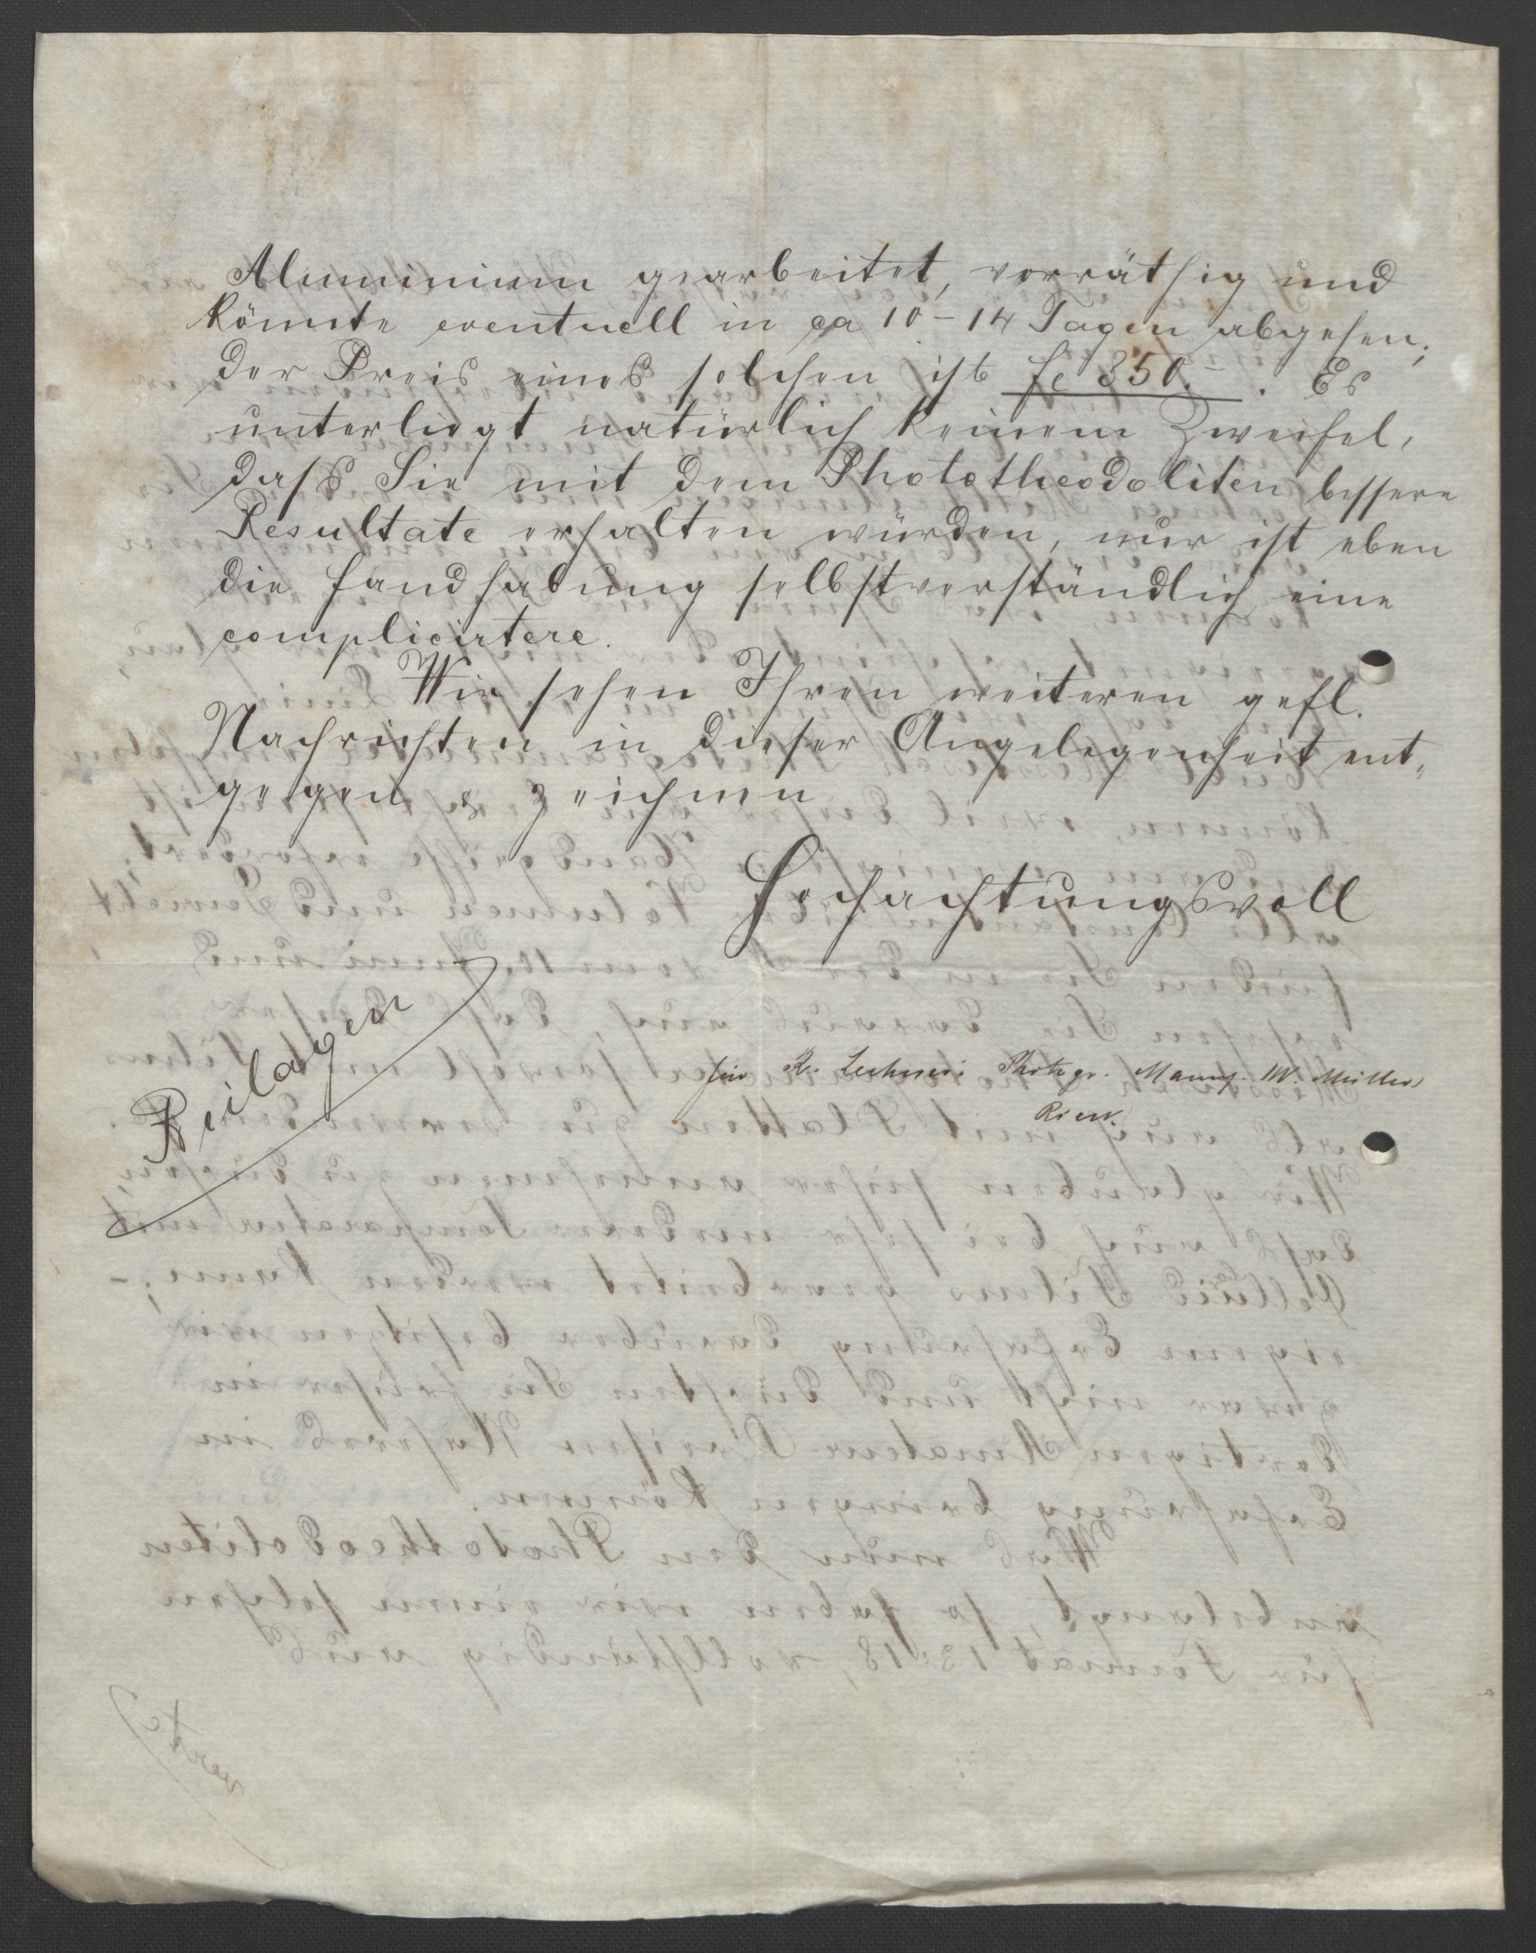 Aluminium gearbeitet, vorräthig und
könnte eventuell in ca 10 – 14 Tagen abgehen;
der Preis eines solchen ist fl 350.– . Es
unterliegt natürlich keinem Zweifel,
dass Sie mit dem Phototheodoliten bessere
Resultate erhalten würden, nur ist eben
die Handhabung selbstverständlich eine
complicirtere.
Wir sehen Ihren weiteren gefl.
Nachrichten in dieser Angelegenheit ent-
gegen & zeichnen
Hochachtungsvoll
Beilagen
für R. Lechner's Photogr. Manuf. W. Müller